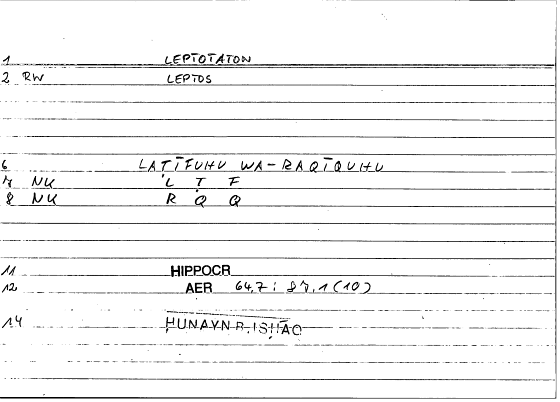 1 LEPTOTATON
2 RW LEPTOS
6 LAṬĪFUHU WA-RAQĪQUHU
7 NK L Ṭ F
8 NK R Q Q
11 HIPPOCR
12 AER 64,7: 87,1(10)
14 ḤUNAYN B. ISḤĀQ